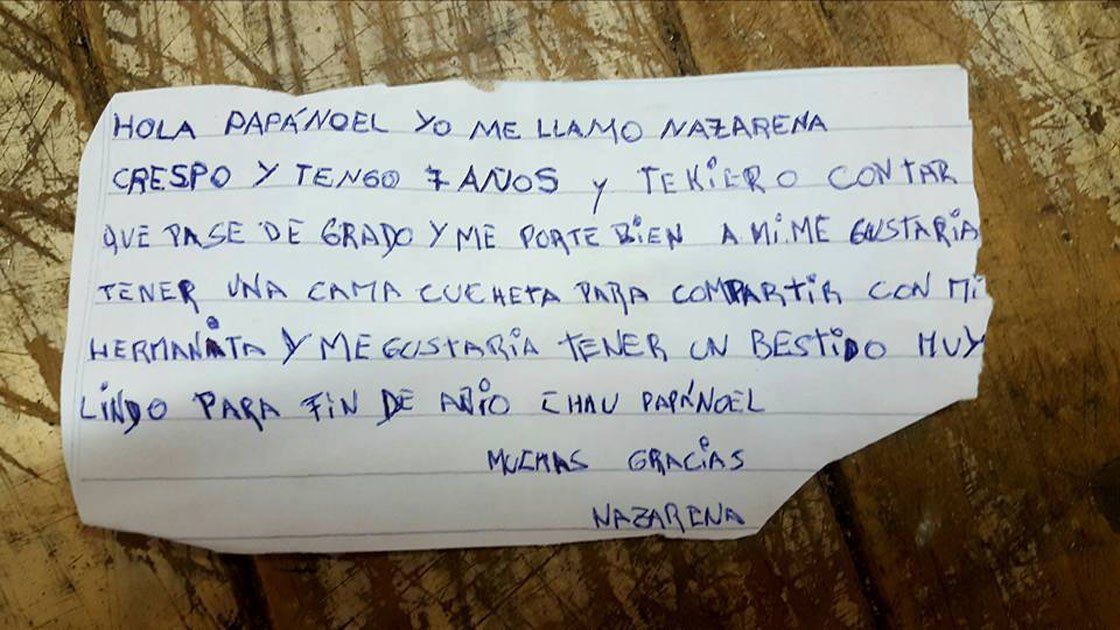 HOLA PAPÁNOEL YO ME LLAMO NAZARENA
CRESPO Y TENGO 7 AÑOS Y TEKIERO CONTAR
QUE PASE DE GRADO Y ME PORTE BIEN A MI ME GUSTARIA
TENER UNA CAMA CUCHETA PARA COMPARTIR CON MI
HERMANITA Y ME GUSTARIA TENER UN BESTIDO MUY
LINDO PARA FIN DE AÑIO CHAU PAPÁNOEL
MUCHAS GRACIAS
NAZARENA